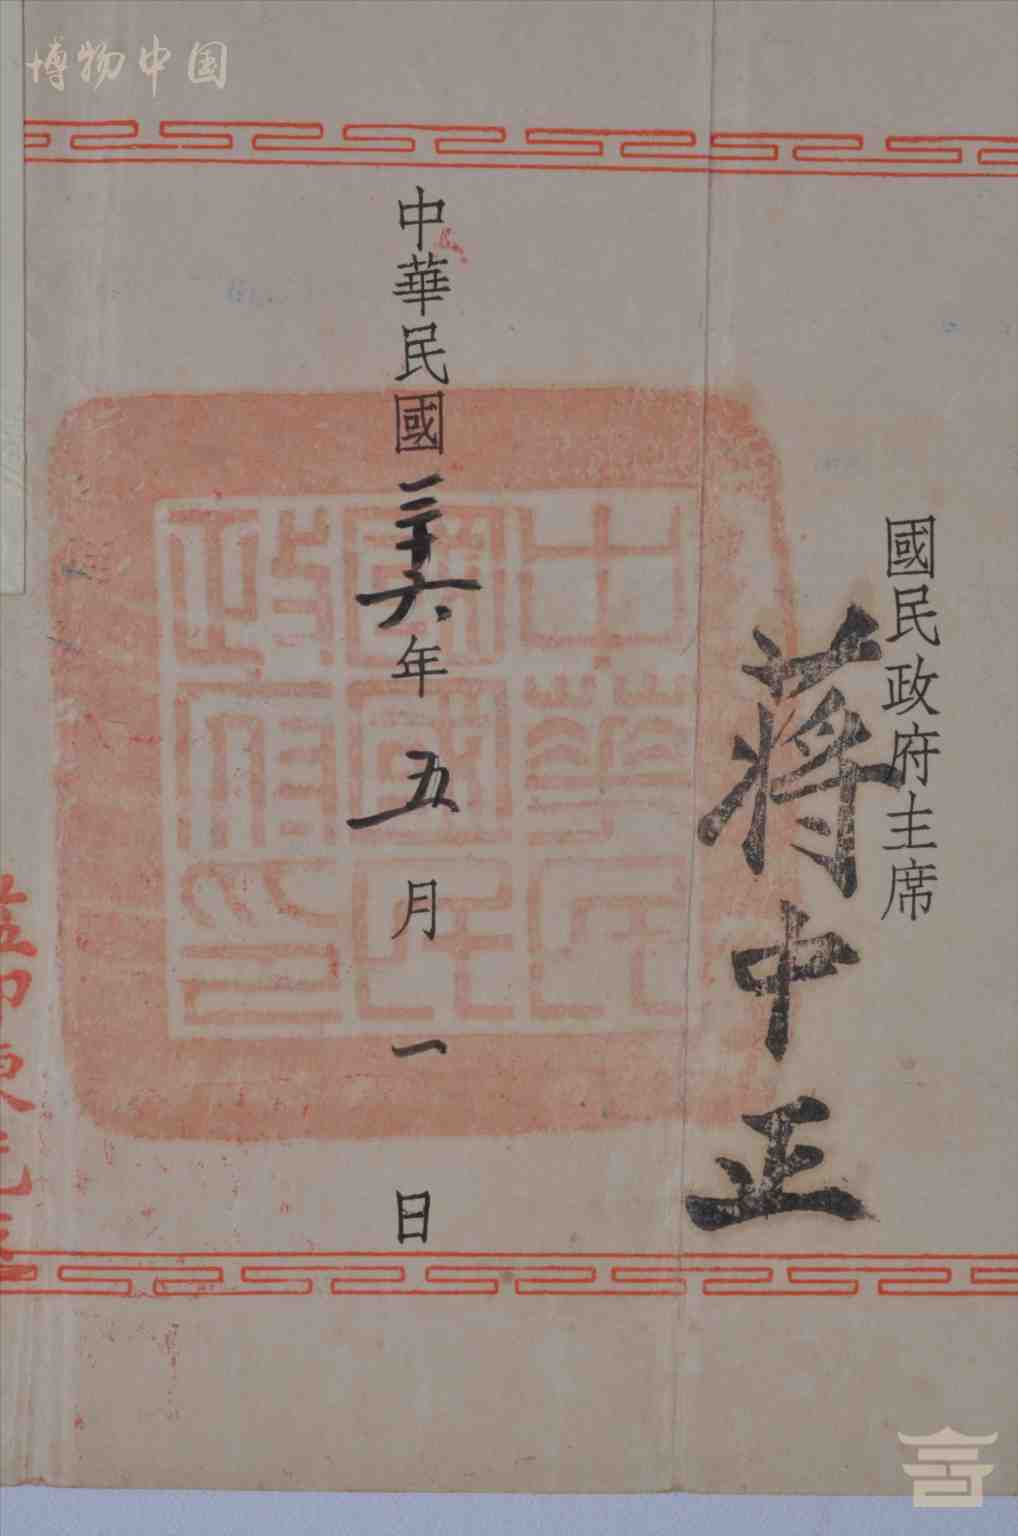 博物中国
國民政府主席
蔣中正
中華民國三十六年五月一日
中華民
國國民
政府印
監印陳